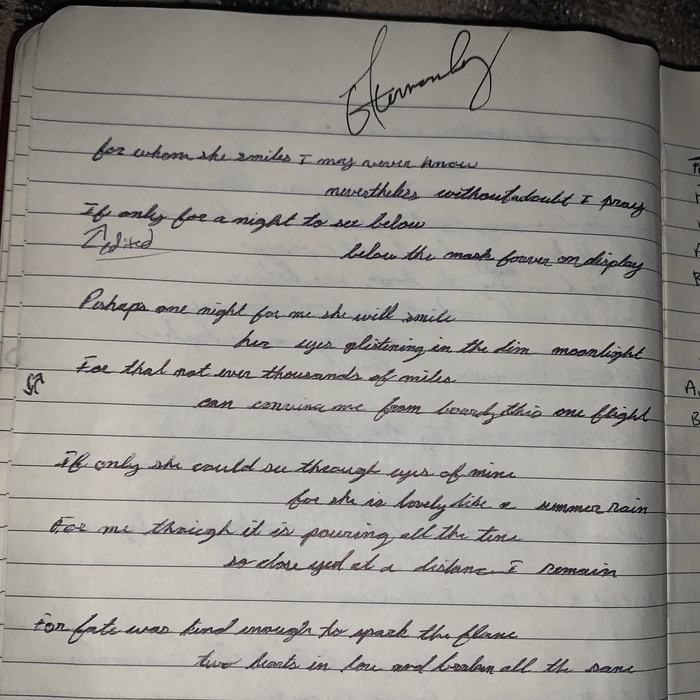 GHernandez
for whom she smiles I may never know
nevertheless without a doubt I pray
If only for a night to see below
↑edited
below the mask forever on display
Perhaps one night for me she will smile
her eyes glistening in the dim moonlight
For that not ever thousands of miles
can convince me from this one flight
If only she could see through eyes of mine
for she is lovely like a summer rain
For me though it is pouring all the time
so close yet at a distance I remain
For fate was kind enough to spark the flame
two hearts in love and broken all the same